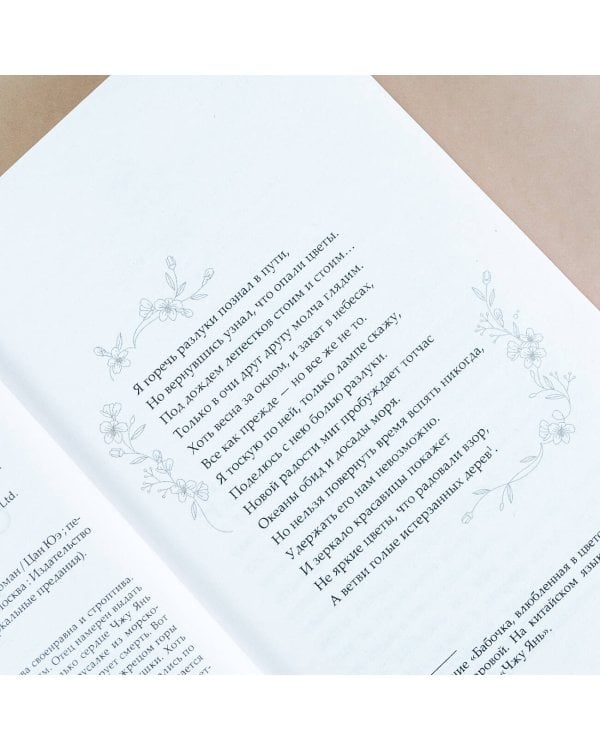 Ltd.
оман / Цан Юэ ; пе-
осква : Издательство
ркальные предания).
ва своенравна и строптива.
м. Отец намерен выдать
лько сердце Чжу Янь
усалке из морско-
рует смерть. Вот
жрецом горы
ушки. Хоть
ались по
ается
ет-
Я горечь разлуки познал в пути,
Но вернувшись узнал, что опали цветы.
Под дождем лепестков стоим и стоим...
Только в очи друг другу молча глядим.
Хоть весна за окном, и закат в небесах,
Все как прежде — но все же не то.
Я тоскую по ней, только лампе скажу,
Поделюсь с нею болью разлуки.
Новой радости миг пробуждает тотчас
Океаны обид и досады моря.
Но нельзя повернуть время вспять никогда,
Удержать его нам невозможно.
И зеркало красавицы покажет
Не яркие цветы, что радовали взор,
А ветви голые истерзанных дерев¹.
ние «Бабочка, влюбленная в цвето
ровой. На китайском язык
«Чжу Янь».